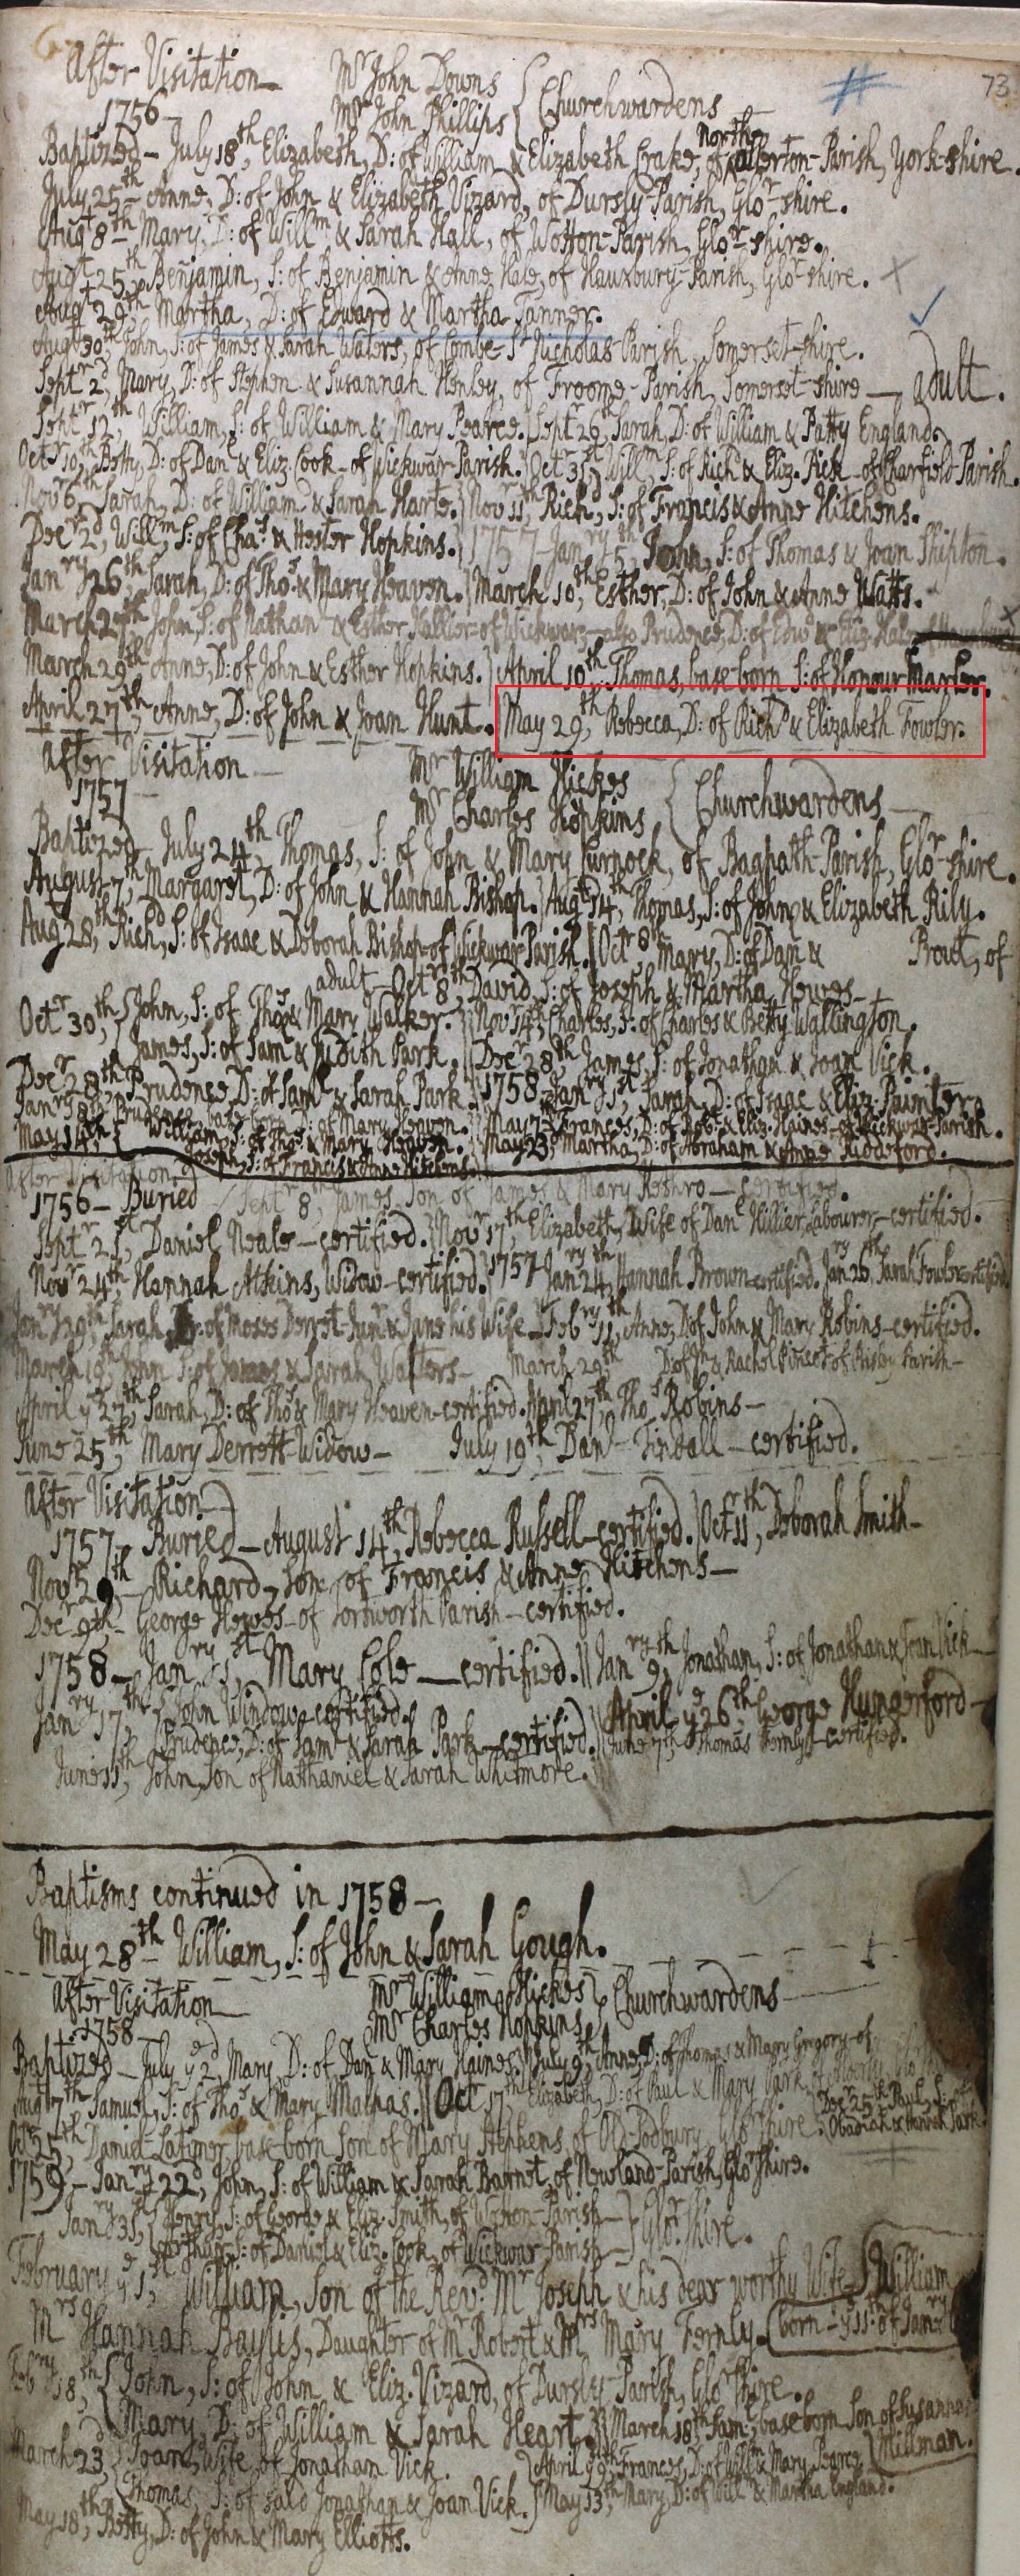 73
After Visitation — Mr John Downs
1756 — Mr John Phillips { Churchwardens —
Baptized — July 18th, Elizabeth, D: of William & Elizabeth Crake, of North allerton-Parish, York-shire.
July 25th Anne, D: of John & Elizabeth Vizard, of Dursly-Parish, Glor-shire.
Augt 8th Mary, D: of Willm & Sarah Hall, of Wotton-Parish, Glor-shire.
Augt 25th Benjamin, S: of Benjamin & Anne Hale, of Hauxbury-Parish, Glor-shire. X
Augt 29th Martha, D: of Edward & Martha Tanner.
Augt 30th, John, S: of James & Sarah Waters, of Combe-St Nicholas Parish, Somerset-shire.
Septr 2d, Mary, D: of Stephen & Susannah Henley, of Froome-Parish, Somerset-shire — adult.
Septr 12th, William, S: of William & Mary Pearce. Septr 26th, Sarah, D: of William & Patty England.
Octr 10th, Betty, D: of Danl & Eliz. Cook — of Wickwar-Parish. Octr 31st, Willm, S: of Richd & Eliz. Pick — of Charfield-Parish.
Novr 6th, Sarah, D: of William & Sarah Harte. Novr 11th, Richd, S: of Francis & Anne Hitchens.
Decr 2d, Willm, S: of Chas & Hester Hopkins. 1757 — Janry 5th, John, S: of Thomas & Joan Shipton.
Janry 26th, Sarah, D: of Thos & Mary Heaven. March 10th, Esther, D: of John & Anne Watts.
March 27th John, S: of Nathanl & Esther Hillier of Wickwar — also Prudence, D: of Edwd & Eliz. Hale
March 29th Anne, D: of John & Esther Hopkins. April 10th Thomas, base-born S: of Honour
April 27th, Anne, D: of John & Joan Hunt. May 29th, Rebecca, D: of Richd & Elizabeth Fowler.
After Visitation — Mr William Hickes
1757 — Mr Charles Hopkins { Churchwardens —
Baptized — July 24th, Thomas, S: of John & Mary Purnock, of Bagpath-Parish, Glor-shire.
August 7th, Margaret, D: of John & Hannah Bishop. Augt 14th, Thomas, S: of John & Elizabeth Rily.
Aug 28th, Richd, S: of Isaac & Deborah Bishop of Wickwar Parish. Octr 8th Mary, D: of Danl & Prout, of
adult — Octr 8th, David, S: of Joseph & Martha Hewes —
Octr 30th, { John, S: of Thos & Mary Walker. Novr 14th, Charles, S: of Charles & Betty Wallington.
James, S: of Saml & Judith Park. Decr 28th, James, S: of Jonathan & Joan Vick.
Decr 28th Prudence, D: of Saml & Sarah Park. 1758 — Janry 1st, Sarah, D: of Isaac & Eliz. Painter.
Janry 8th, Prudence, base-born D: of Mary Heaven. May 7th Frances, D: of Robt & Eliz. Haines of Wickwar-Parish.
May 14th { William, S: of Thos & Mary Heaven. May 23d, Martha, D: of Abraham & Anne Riddeford.
Joseph, S: of Francis & Anne Hitchens.
After Visitation,
1756 — Buried Septr 8th, James, Son of James & Mary Keshro — certified.
Septr 21st, Daniel Neale — certified. Novr 17th, Elizabeth, Wife of Danl Hillier, Labourer, — certified.
Novr 24th, Hannah Atkins, Widow — certified. 1757 Janry 24th, Hannah Brown certified. Janry 26th, Sarah Fowler certified
Janry 29th, Sarah, D: of Moses Derret Junr & Jane his Wife — Febry 11th, Anne, D: of John & Mary Robins — certified.
March 19th John S: of James & Sarah Walters — March 29th D: of Jn & Rachel Pincot of Nibly Parish —
April ye 27th, Sarah, D: of Thos & Mary Heaven — certified. April 27th, Thos Robins —
June 25th, Mary Derrett Widow — July 19th, Danl Tindall — certified.
After Visitation
1757 — Buried — August 14th, Rebecca Russell — certified. Octr 11th, Deborah Smith —
Novr 29th — Richard, Son of Francis & Anne Hitchens —
Decr 9th, George Hewes — of Tortworth Parish — certified.
1758 — Janry 1st, Mary Cole — certified. Janry 9th, Jonathan, S: of Jonathan & Joan Vick —
Janry 17th, { John Window — certified. April ye 26th George Hungerford —
Prudence, D: of Saml & Sarah Park — certified. June 7th Thomas Fernly — certified.
June 11th, John, Son of Nathaniel & Sarah Whitmore.
Baptisms continued in 1758 —
May 28th William, S: of John & Sarah Gough.
After Visitation — Mr William Hickes
1758 — Mr Charles Hopkins } Churchwardens —
Baptized — July ye 2d, Mary, D: of Danl & Mary Haines. July 9th, Anne, D: of Thomas & Mary Gregory — of
Augt 7th Samuel, S: of Thos & Mary Malpas. Octr 17th, Elizabeth, D: of Paul & Mary Park, Decr 25th Paul, S: of
Daniel Latimor, base-born Son of Mary Stephens, of Old-Sodbury, Glor-shire. Obadiah & Hannah Park.
1759 — Janry 22d, John, S: of William & Sarah Barnet, of Newland-Parish, Glor-shire.
Janry 31st, { Henry, S: of George & Eliz. Smith, of Wotton-Parish —
Arthur, S: of Daniel & Eliz. Cook, of Wickwar Parish — } Glor-shire.
February ye 1st, William, Son of the Revd Mr Joseph & his dear worthy Wife William
Mrs Hannah Baylis, Daughter of Mr Robert & Mrs Mary Fernly. born — ye 11th of Janry
Febry 18th, { John, S: of John & Eliz. Vizard, of Dursly Parish, Glor-shire.
Mary, D: of William & Sarah Heart. March 18th Saml, base born Son of Susanna
March 23d, { Joan, Wife of Jonathan Vick. April 9th, Frances, D: of Willm & Mary Pearce Millman.
Thomas, S: of said Jonathan & Joan Vick. May 13th, Mary, D: of Willm & Martha England.
May 18th, Betty, D: of John & Mary Elliotts.